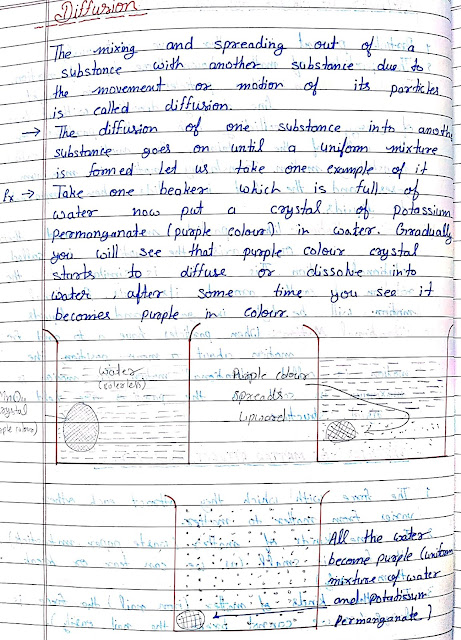 Diffusion
The mixing and spreading out of a
substance with another substance due to
the movement or motion of its particles
is called diffusion.
→ The diffusion of one substance into anothe
substance goes on until a uniform mixture
is formed let us take one example of it
Ex → Take one beaker which is full of
water now put a crystal of potassium
permanganate (purple colour) in water. Gradually
you will see that purple colour crystal
starts to diffuse or dissolve into
water, after some time you see it
becomes purple in colour.
water
(colorless)
MnO4
crystal
ple colour)
Purple colour
spreads
upward
All the water
become purple (uniform
mixture of water
and potassium
permanganate)